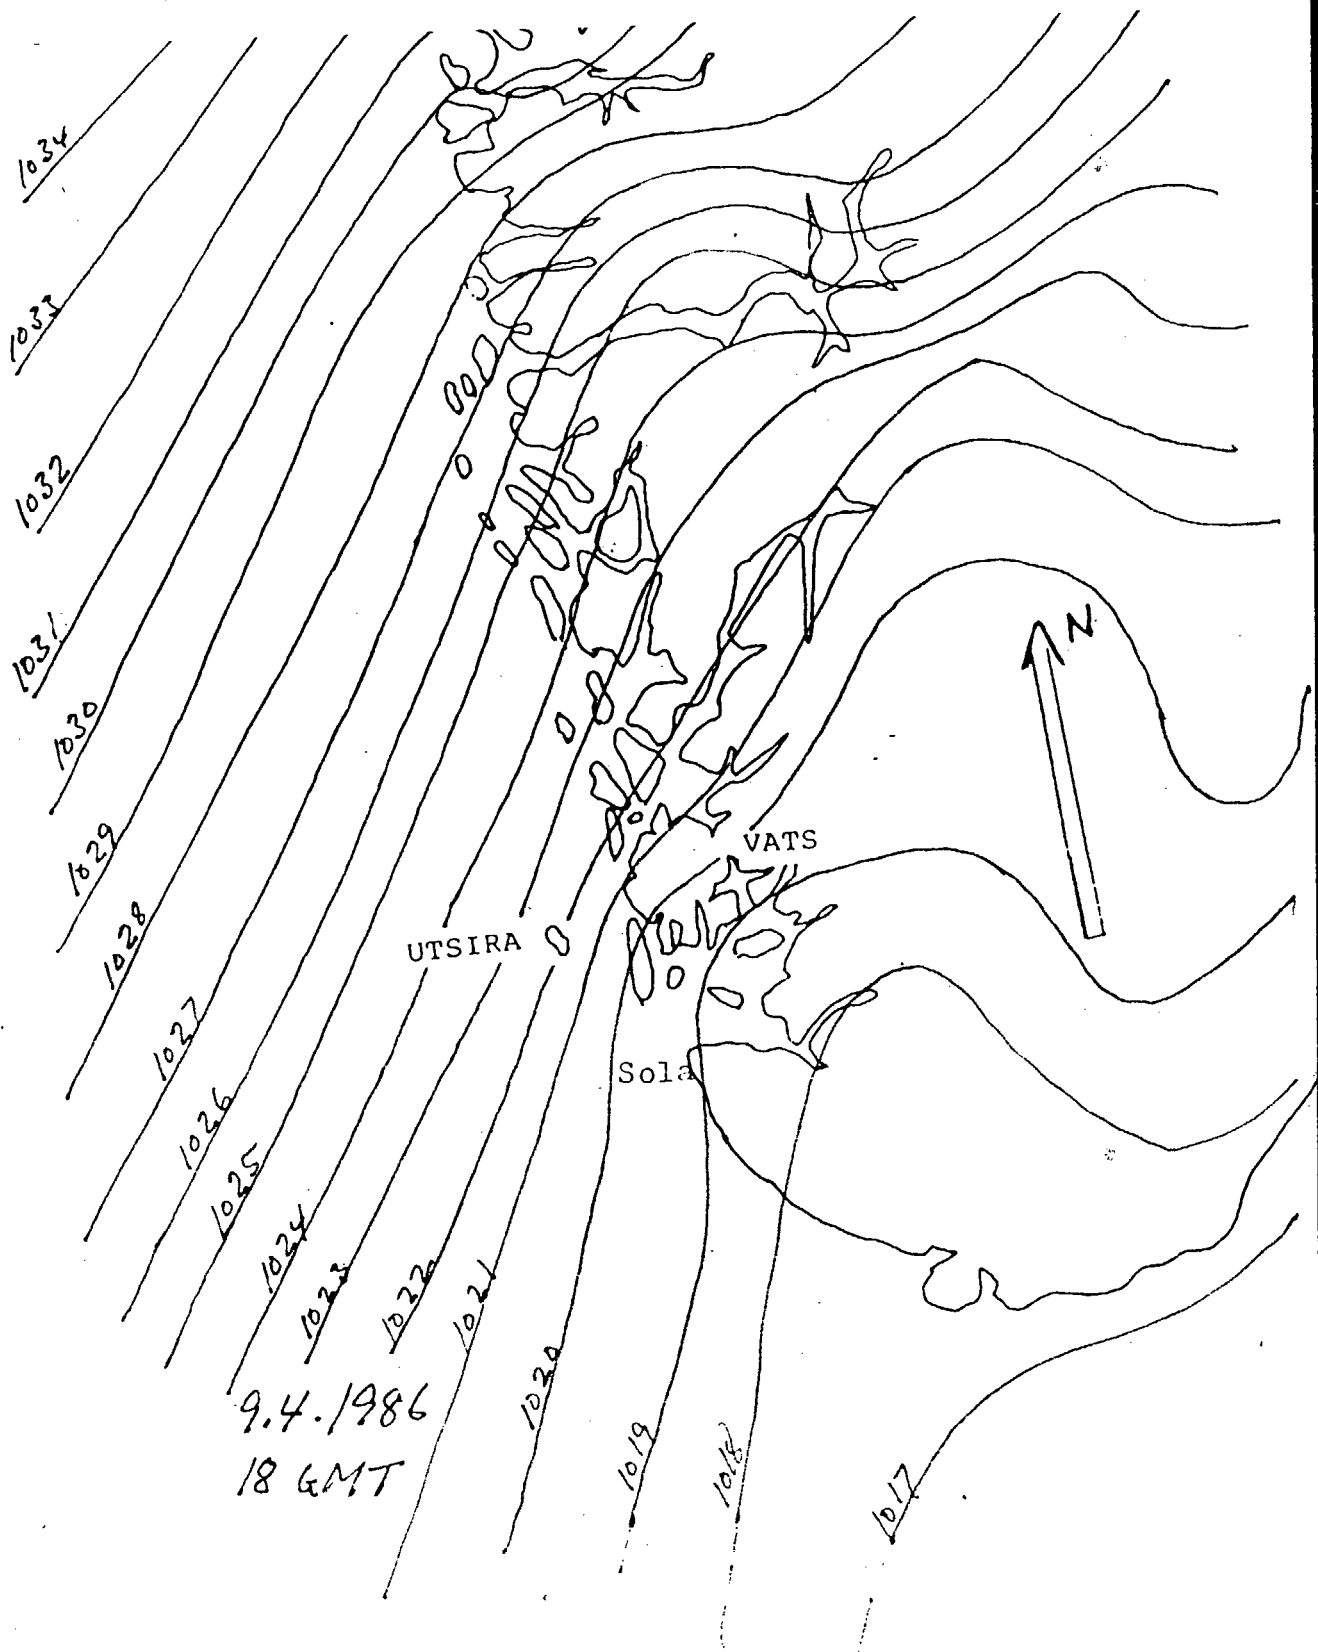 1034
1033
1032
1031
1030
1029
1028
1027
1026
1025
1024
1023
1022
1021
1020
1019
1018
1017
N
VATS
UTSIRA
Sola
9.4.1986
18 GMT